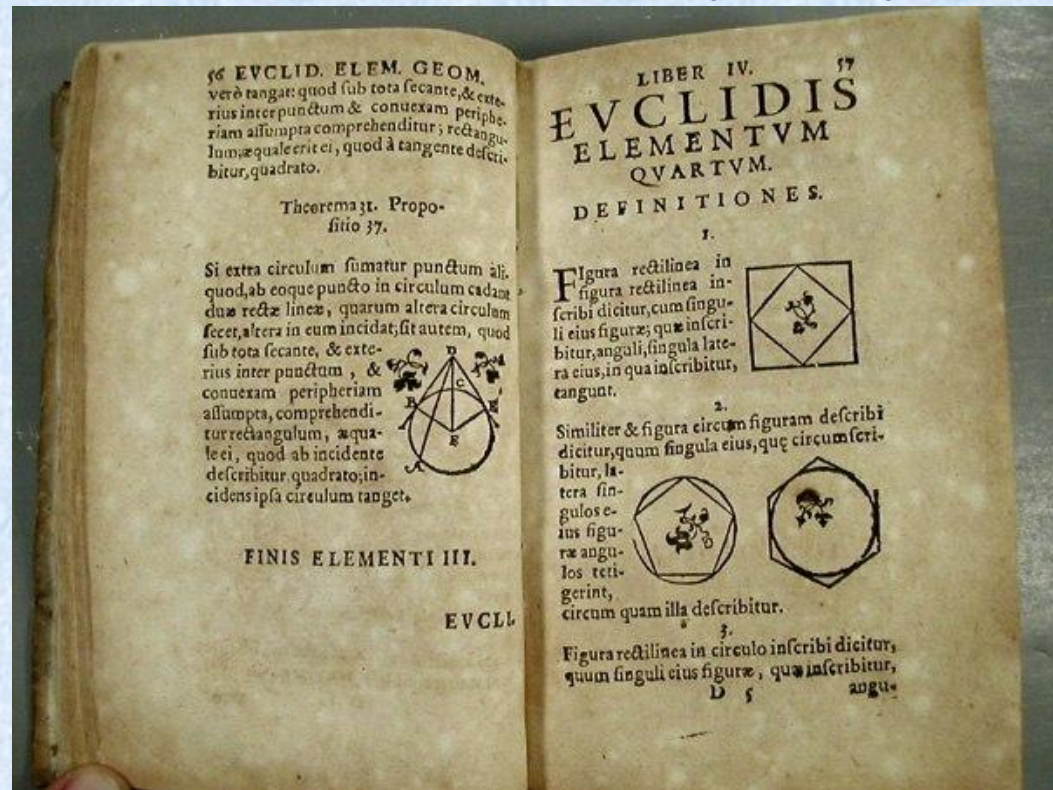 56 EVCLID. ELEM. GEOM.
verò tangat: quod ſub tota ſecante, & exte-
rius inter punctum & conuexam periphe-
riam aſſumpta comprehenditur; rectangu-
lum; æquale erit ei, quod à tangente deſcri-
bitur, quadrato.
Theorema 31. Propo-
ſitio 37.
Si extra circulum ſumatur punctum ali-
quod, ab eoque puncto in circulum cadant
duæ rectæ lineæ, quarum altera circulum
ſecet, altera in eum incidat; ſit autem, quod
ſub tota ſecante, & exte-
rius inter punctum, &
conuexam peripheriam
aſſumpta, comprehendi-
tur rectangulum, æqua-
le ei, quod ab incidente
deſcribitur quadrato; in-
cidens ipſa circulum tanget.
D
C
B
E
F
A
FINIS ELEMENTI III.
EVCLI-
LIBER IV. 57
EVCLIDIS
ELEMENTVM
QVARTVM.
DEFINITIONES.
1.
FIgura rectilinea in
figura rectilinea in-
ſcribi dicitur, cum ſingu-
li eius figuræ; quæ inſcri-
bitur, anguli, ſingula late-
ra eius, in qua inſcribitur,
tangunt.
2.
Similiter & figura circum figuram deſcribi
dicitur, quum ſingula eius, quę circumſcri-
bitur, la-
tera ſin-
gulos e-
ius figu-
ræ angu-
los teti-
gerint,
circum quam illa deſcribitur.
3.
Figura rectilinea in circulo inſcribi dicitur,
quum ſinguli eius figuræ, quæ inſcribitur,
D 5 angu-